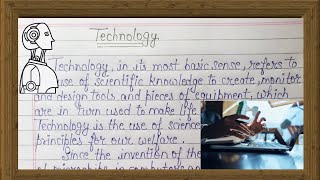 Technology
Technology, in its most basic sense, refers to
use of scientific knowledge to create, monitor
and design tools and pieces of equipment, which
are in turn used to make life
Technology is the use of science
principles for our welfare.
Since the invention of the